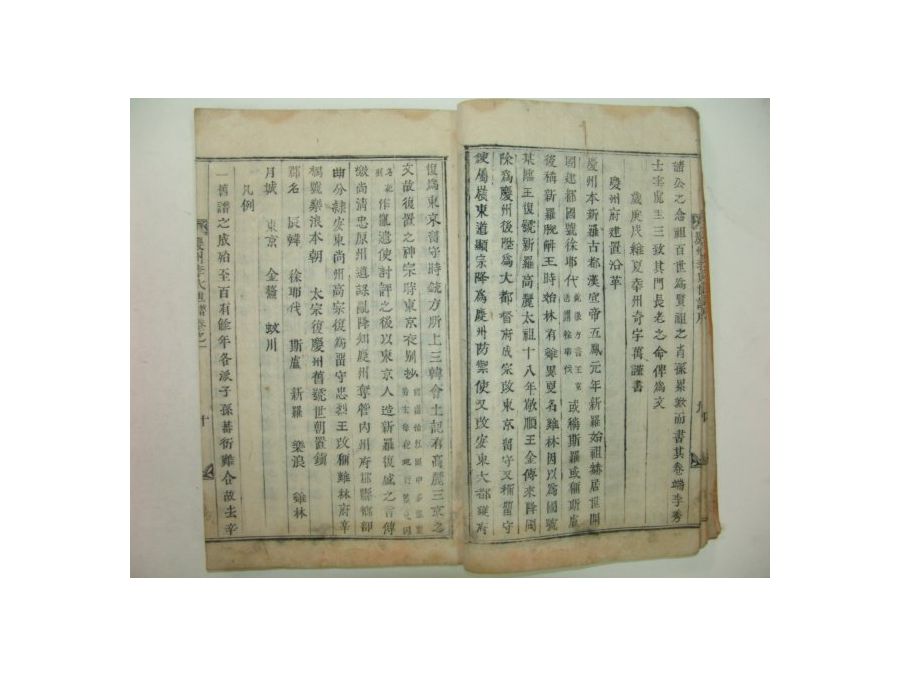 諸公之念祖百世爲賢祖之肖孫累敬而書其卷端李秀
士寅宰三致其門長老之命俾爲文
歲庚戌維夏幸州奇宇萬謹書
慶州府建置沿革
慶州本新羅古都漢宣帝五鳳元年新羅始祖赫居世開
國建都國號徐耶伐 或稱斯羅或稱斯盧
後稱新羅脫解王時始林有雞異更名雞林因以爲國號
基臨王復號新羅高麗太祖十八年敬順王金傅來降國
除爲慶州後陞爲大都督府成宗改東京留守又稱留守
使屬嶺東道顯宗降爲慶州防禦使又改安東大都護府
復爲東京留守時銳方所上三韓會土記有高麗三京之
文故復置之神宗時東京夜別抄
作亂遣使討評之後以東京人造新羅復盛之言傳
檄尚清忠原州道謀亂降知慶州奪管內州府郡縣鄉部
曲分隷安東尚州高宗復爲留守忠烈王改稱雞林府辛
禑號樂浪本朝 太宗復慶州舊號世朝置鎭
郡名 辰韓 徐耶伐 斯盧 新羅 樂浪 雞林
月城 東京 金鰲 蚊川
凡例
一舊譜之成殆至百有餘年各派子孫蕃衍雖合故去辛
慶州李氏世譜卷之一
十